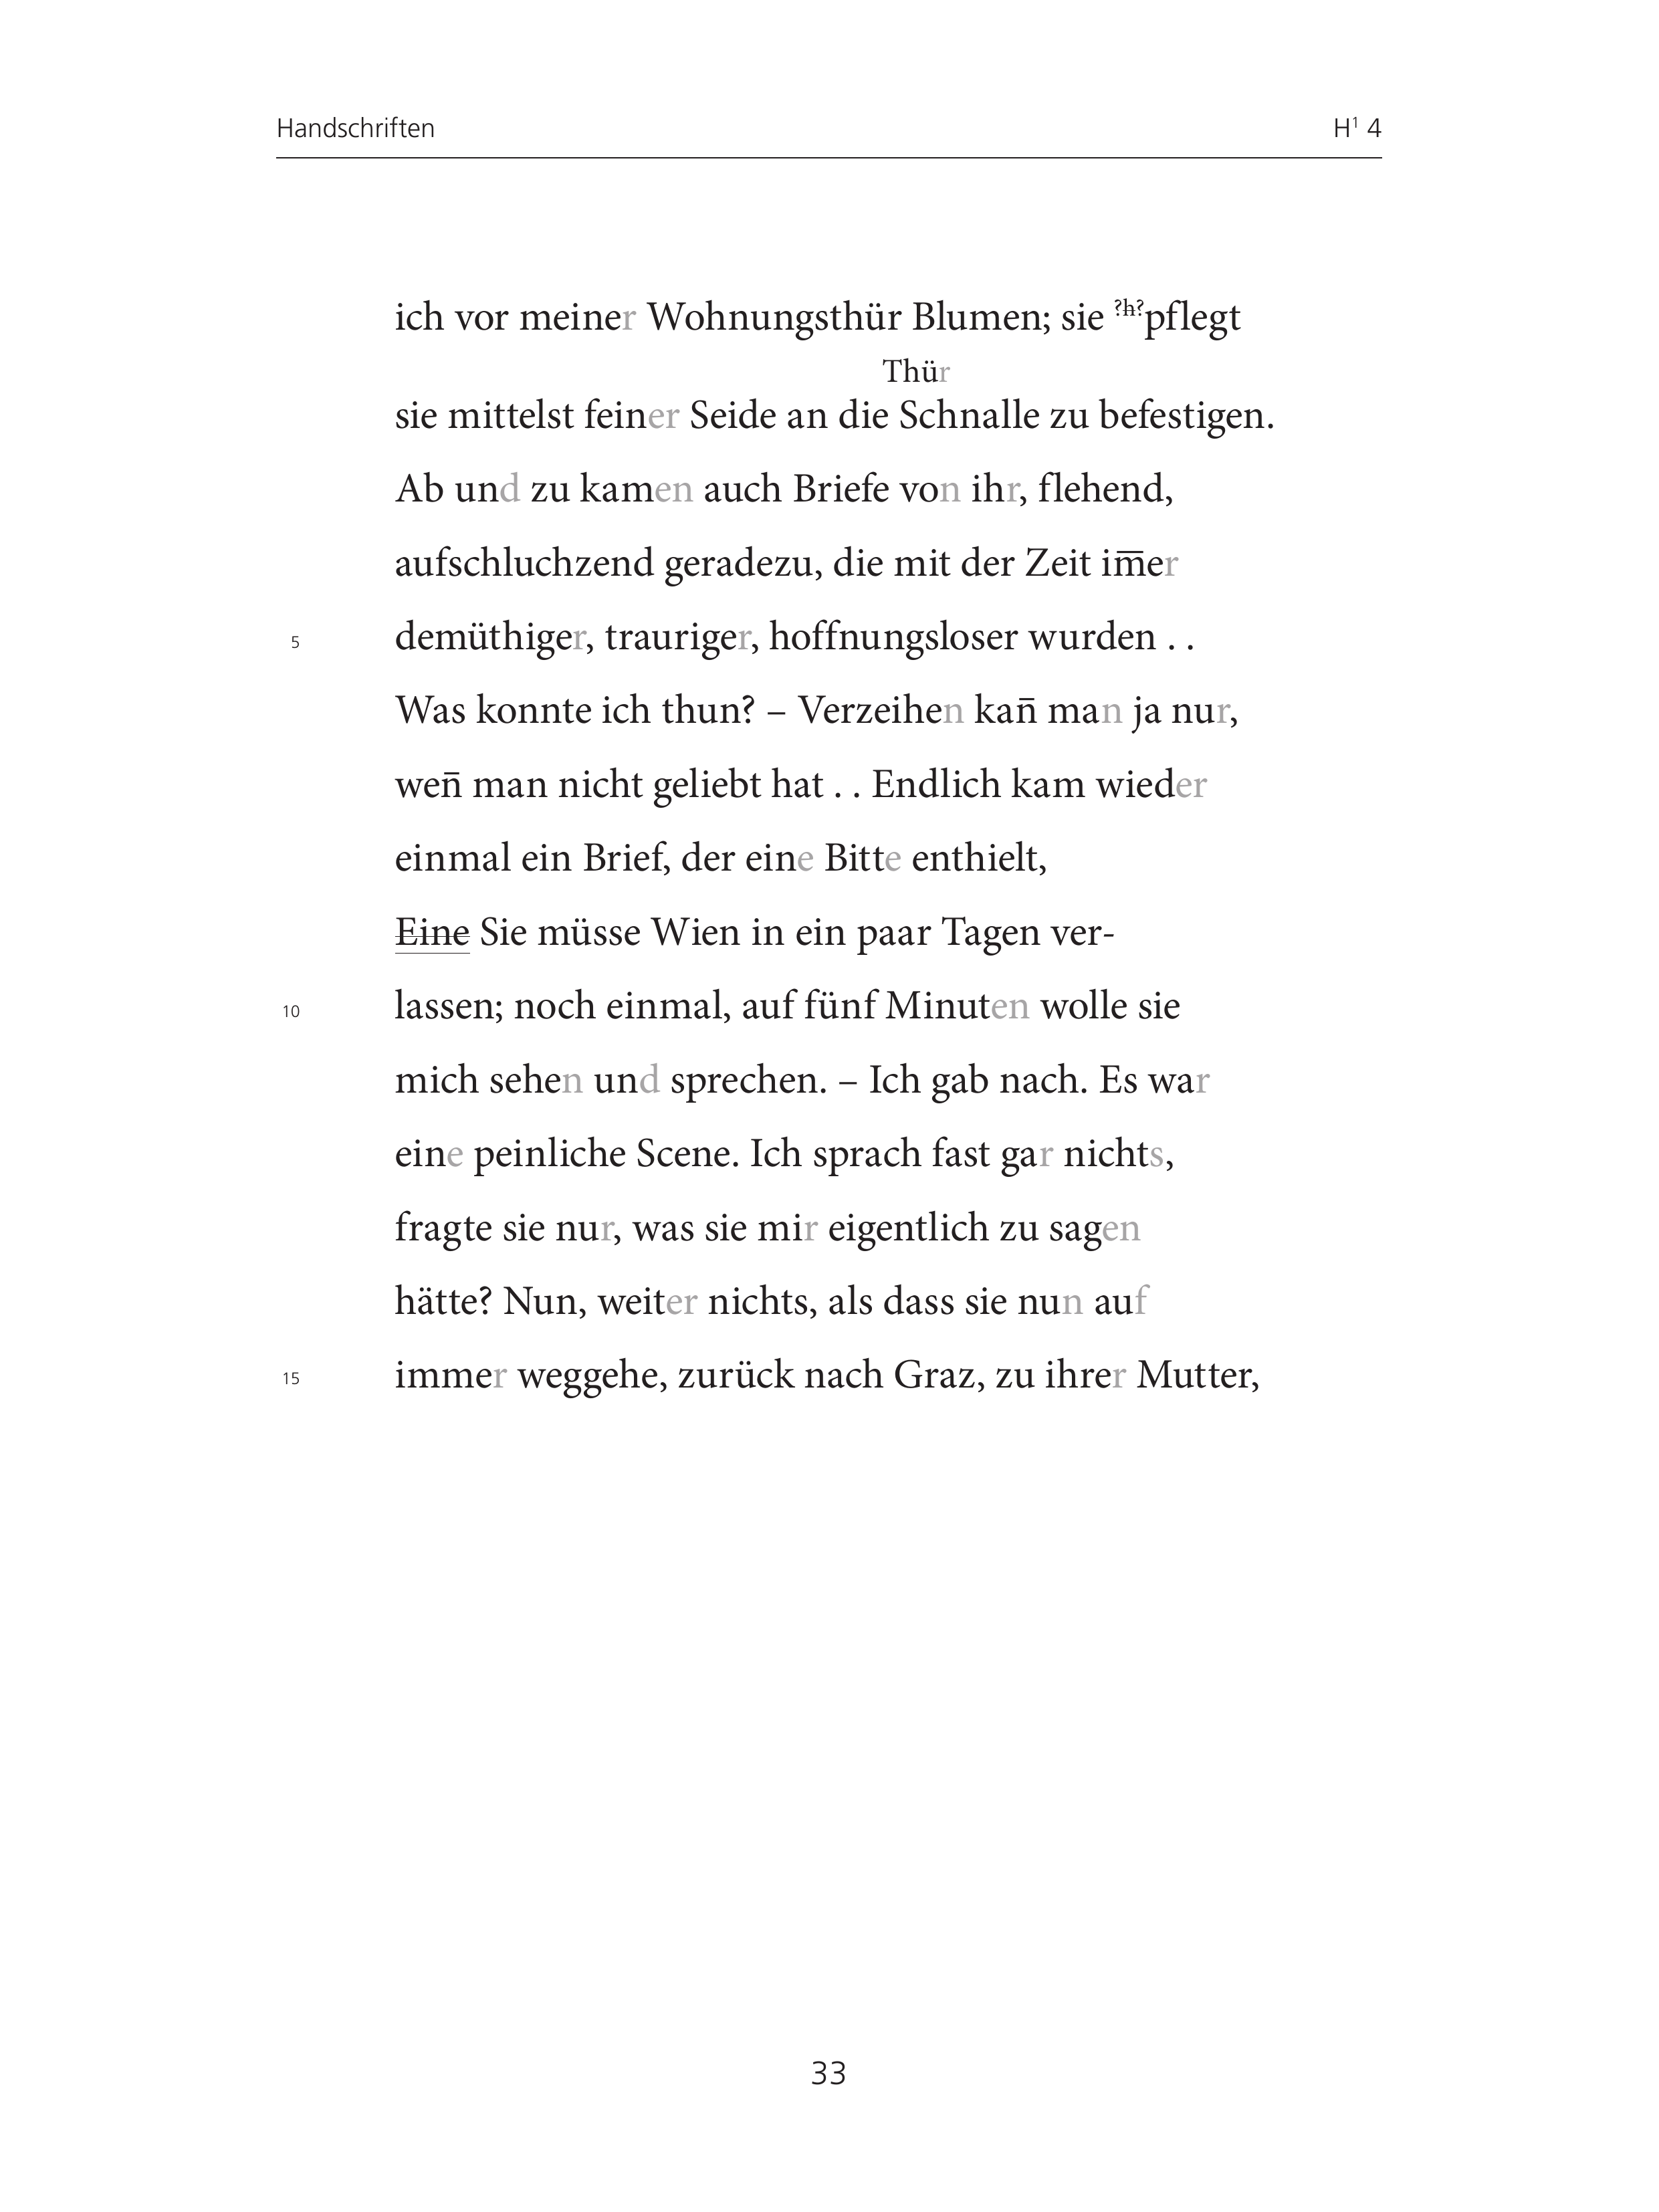 Handschriften H¹ 4
ich vor meiner Wohnungsthür Blumen; sie ?h?pflegt
Thür
sie mittelst feiner Seide an die Schnalle zu befestigen.
Ab und zu kamen auch Briefe von ihr, flehend,
aufschluchzend geradezu, die mit der Zeit im̅er
5 demüthiger, trauriger, hoffnungsloser wurden . .
Was konnte ich thun? – Verzeihen kan̅ man ja nur,
wen̅ man nicht geliebt hat . . Endlich kam wieder
einmal ein Brief, der eine Bitte enthielt,
Eine Sie müsse Wien in ein paar Tagen ver-
10 lassen; noch einmal, auf fünf Minuten wolle sie
mich sehen und sprechen. – Ich gab nach. Es war
eine peinliche Scene. Ich sprach fast gar nichts,
fragte sie nur, was sie mir eigentlich zu sagen
hätte? Nun, weiter nichts, als dass sie nun auf
15 immer weggehe, zurück nach Graz, zu ihrer Mutter,
33